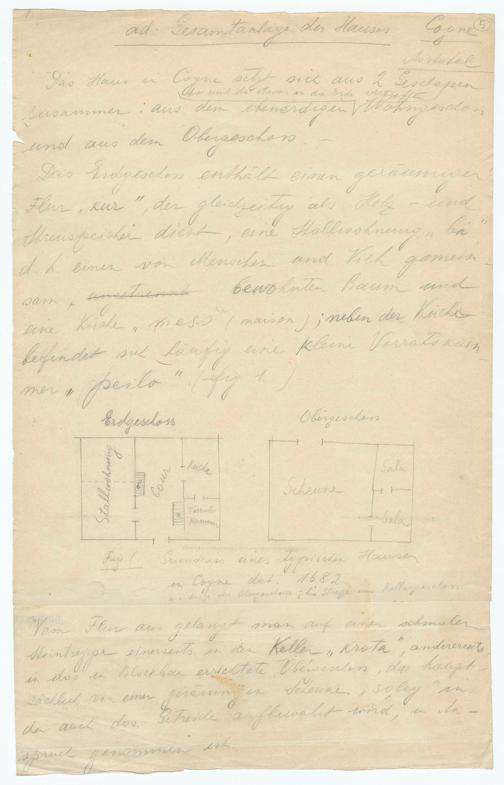 ad. Gesamtanlage des Hauses Cogne 5
Aostatal
Das Haus in Cogne setzt sich aus 2 Geschossen
über und die etwas in die Erde
zusammen: aus dem ebenerdigen Wohngeschoss
und aus dem Obergeschoss. –
Das Erdgeschoss enthält einen geräumigen
Flur „kur", der gleichzeitig als Holz- und
Streuspeicher dient, eine Stallwohnung „bà"
d. h. einen von Menschen und Vieh gemein-
sam, ungetrennt bewohnten Raum und
eine Küche „mesõ" (maison); neben der Küche
befindet sich häufig eine kleine Vorratskam-
mer „peilo" (fig 1.)
Erdgeschoss Obergeschoss
Stallwohnung
Cour
Küche
Vorrats
Kammer
Scheune
Sala
Sala
Fig 1 Grundriss eines typischen Hauses
in Cogne dat. 1682
Vom Flur aus gelangt man auf einer schmalen
Steintreppe einerseits in den Keller „krota", andererseits
in das in Blockbau errichtete Obergeschoss, das haupt-
sächlich von einer geräumigen Scheune, „soley" in
der auch das Getreide aufbewahrt wird, in An-
spruch genommen ist.